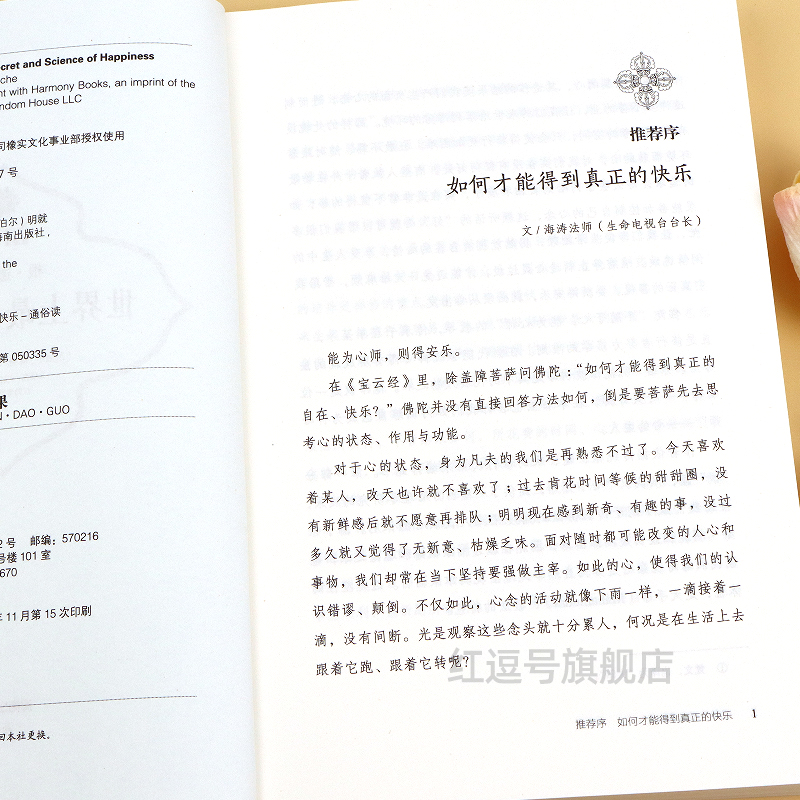 cret and Science of Happiness
che
nt with Harmony Books, an imprint of the
ndom House LLC
司橡实文化事业部授权使用
7 号
泊尔）明就
海南出版社，
the
快乐－通俗读
第 050335 号
果
N·DAO·GUO
2 号 邮编：570216
号楼 101 室
670
年 11 月第 15 次印刷
回本社更换。
推荐序
如何才能得到真正的快乐
文/海涛法师（生命电视台台长）
能为心师，则得安乐。
在《宝云经》里，除盖障菩萨问佛陀：“如何才能得到真正的
自在、快乐？”佛陀并没有直接回答方法如何，倒是要菩萨先去思
考心的状态、作用与功能。
对于心的状态，身为凡夫的我们是再熟悉不过了。今天喜欢
着某人，改天也许就不喜欢了；过去肯花时间等候的甜甜圈，没
有新鲜感后就不愿意再排队；明明现在感到新奇、有趣的事，没过
多久就又觉得了无新意、枯燥乏味。面对随时都可能改变的人心和
事物，我们却常在当下坚持要强做主宰。如此的心，使得我们的认
识错谬、颠倒。不仅如此，心念的活动就像下雨一样，一滴接着一
滴，没有间断。光是观察这些念头就十分累人，何况是在生活上去
跟着它跑、跟着它转呢？
红逗号旗舰店
推荐序 如何才能得到真正的快乐 1